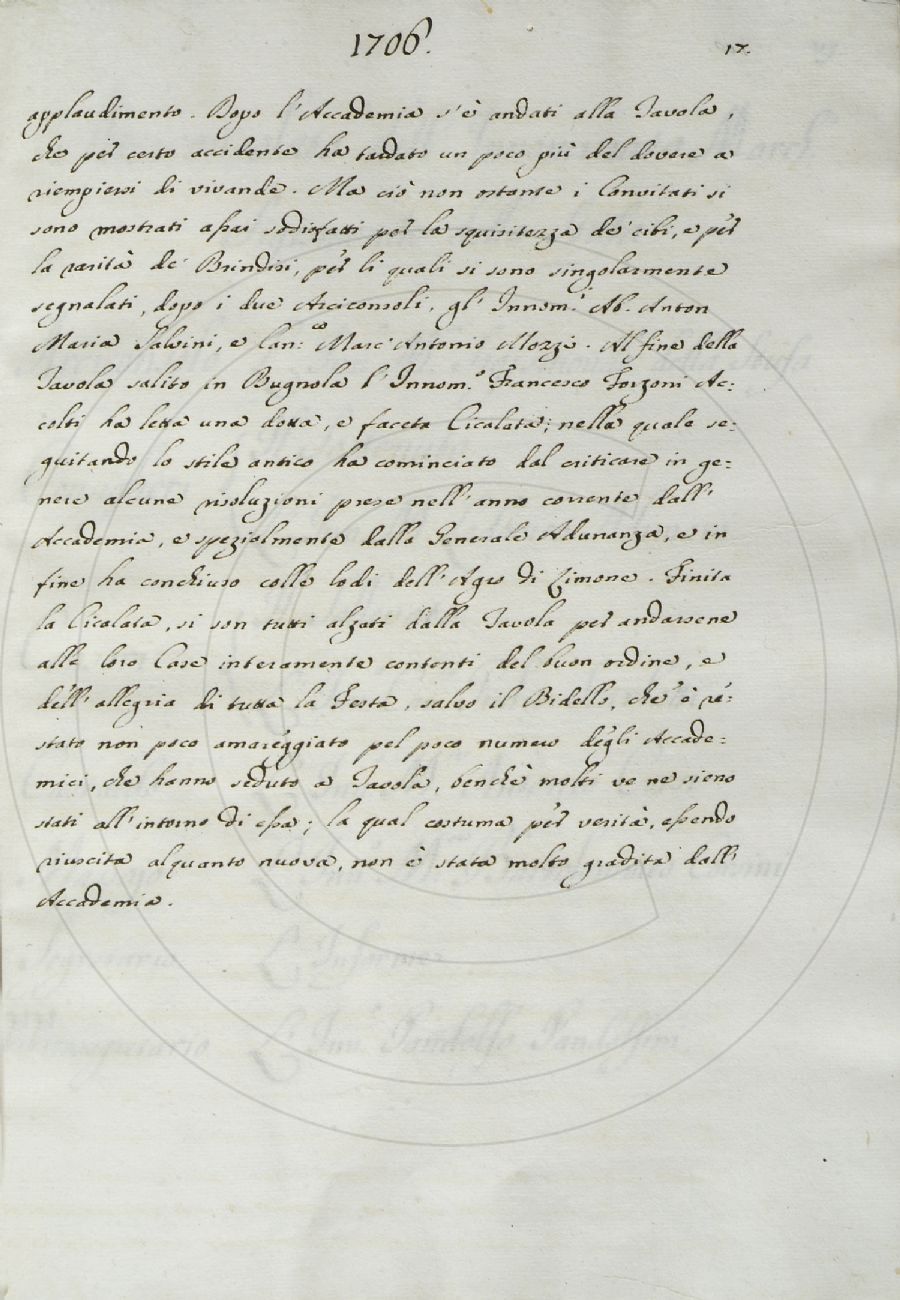 1706.
17.
applaudimento. Dopo l'Accademia s'è andati alla Tavola,
che per certo accidente ha tardato un poco più del dovere a
riempiersi di vivande. Ma ciò non ostante i Convitati si
sono mostrati assai sodisfatti per la squisitezza de' cibi, e per
la rarità de' Brindisi, per li quali si sono singolarmente
segnalati, dopo i due Arciconsoli, gl'Innom.i Ab. Anton
Maria Salvini, e Can:co Marc'Antonio Mozzi. Al fine della
Tavola salito in Bugnola l'Innom.o Francesco Forzoni Ac:
colti ha letta una dotta, e faceta Cicalata; nella quale se:
guitando lo stile antico ha cominciato dal criticare in ge:
nere alcune risoluzioni prese nell'anno corrente dall'
Accademia, e spezialmente dalla Generale Adunanza, e in
fine ha conchiuso colle lodi dell'Agro di Limone. Finita
la Cicalata, si son tutti alzati dalla Tavola per andarsene
alle loro Case interamente contenti del buon ordine, e
dell'allegria di tutta la Festa, salvo il Bidello, che è re:
stato non poco amareggiato pel poco numero degli Accade:
mici, che hanno seduto a Tavola, benchè molti ve ne sieno
stati all'intorno di essa; la qual costuma per verità, essendo
riuscita alquanto nuova, non è stata molto gradita dall'
Accademia.